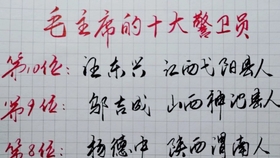 毛主席的十大警卫员
第10位：汪东兴 江西弋阳县人
第9位：邬吉成 山西神池县人
第8位：杨德中 陕西渭南人